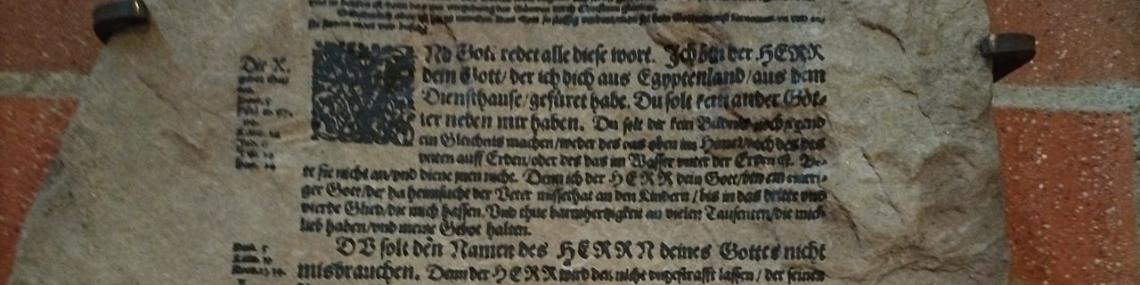 Die X.
ND Gott redet alle diese wort. Ich bin der HERR
dein Gott/ der ich dich aus Egyptenland/ aus dem
Diensthause/ gefüret habe. Du solt kein ander Göt-
ter neben mir haben. Du solt dir kein Bildnis noch jrgend
ein Gleichnis machen/ weder des das oben im Himel/ noch des das
vnten auff Erden/ oder des das im Wasser vnter der Erden ist. Be-
te sie nicht an/ vnd diene jnen nicht. Denn ich der HERR dein Gott/ bin ein eiueri-
ger Gott/ der da heimsucht der Veter missethat an den Kindern/ bis in das dritte vnd
vierde Glied/ die mich hassen. Vnd thue barmhertzigkeit an vielen Tausenten/ die mich
lieb haben/ vnd meine Gebot halten.
DV solt den Namen des HERRN deines Gottes nicht
misbrauchen. Denn der HERR wird den nicht vngestrafft lassen/ der seinen